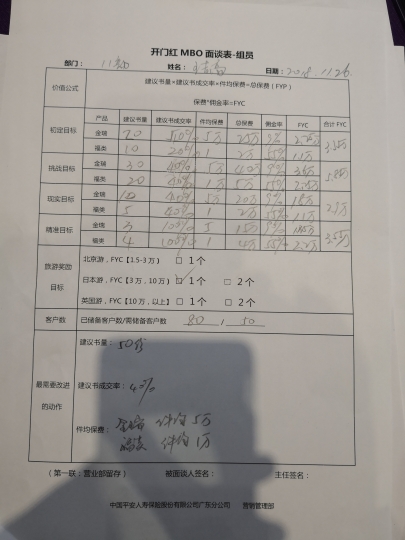 开门红 MBO 面谈表-组员
部门： 姓名： 日期：2018.11.26
价值公式
建议书量×建议书成交率×件均保费=总保费（FYP）
保费*佣金率=FYC
产品 建议书量 建议书成交率 件均保费 总保费 佣金率 FYC 合计 FYC
初定目标
金瑞 5万
福类 10 20% 1 2万 55% 1.1万
挑战目标
金瑞 30 40% 5万 9%
福类 20 1万 55%
现实目标
金瑞 10 40% 5万 20万 9% 1.8万
福类 5 40% 1 2万 55% 1.1万
精准目标
金瑞 3 100% 5 15万 9%
福类 4 100% 1 4万 55% 2.2万
旅游奖励
目标
北京游，FYC【1.5-3 万） □ 1个
日本游，FYC【3 万，10 万） □ 1个 □ 2个
英国游，FYC【10 万，以上） □ 1个 □ 2个
客户数 已储备客户数/需储备客户数 80 / 50
最需要改进
的动作
建议书量： 50份
建议书成交率： 40%
件均保费： 金瑞 件均 5万
福类 件均 1万
（第一联：营业部留存） 被面谈人签名： 主任签名：
中国平安人寿保险股份有限公司广东分公司 营销管理部